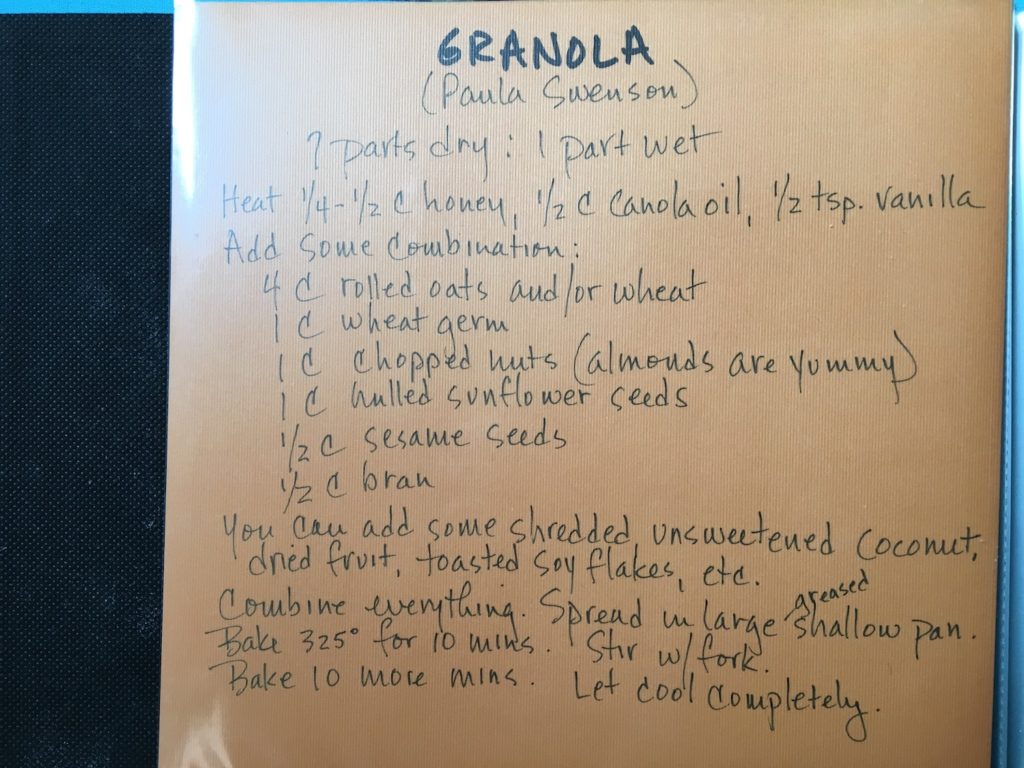 GRANOLA
(Paula Swenson)
7 parts dry : 1 part wet
Heat 1/4-1/2 c honey, 1/2 c canola oil, 1/2 tsp. vanilla
Add some combination:
4 C rolled oats and/or wheat
1 C wheat germ
1 C chopped nuts (almonds are yummy)
1 C hulled sunflower seeds
1/2 C sesame seeds
1/2 C bran
You can add some shredded, unsweetened coconut,
dried fruit, toasted soy flakes, etc.
Combine everything. Spread in large greased shallow pan.
Bake 325° for 10 mins. Stir w/fork.
Bake 10 more mins. Let cool completely.